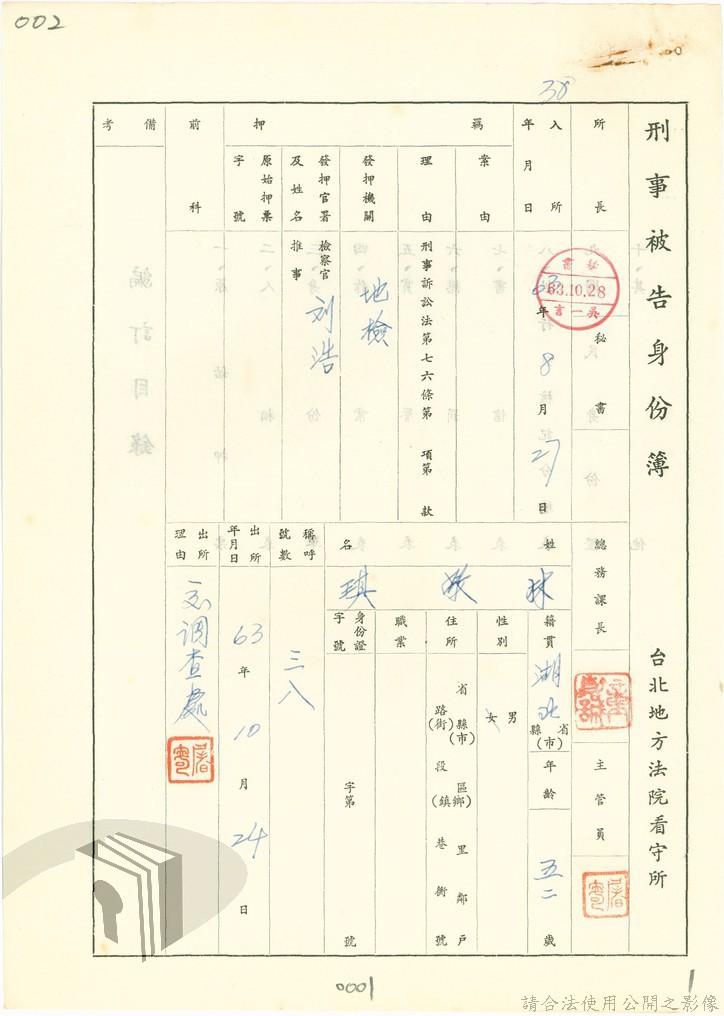 002
38
刑事被告身份簿
台北地方法院看守所
所長
秘書
總務課長
主管員
入所
年月日
63年8月27日
秘書
63.10.28
吳一言
羈押
案由
理由
刑事訴訟法第七六條第 項第 款
發押機關
地檢
發押官署及姓名
檢察官
推事
刘浩
原始押票字號
前科
備考
姓名
林
琪
籍貫
湖北省縣(市)
年齡
五二歲
性別
男
女
住所
省縣(市)區(鄉鎮)里鄰戶
路(街)段巷衖號
職業
身份證字號
字第 號
稱呼號數
三八
出所年月日
63年10月24日
出所理由
調查處
編訂目錄
0001
1
請合法使用公開之影像